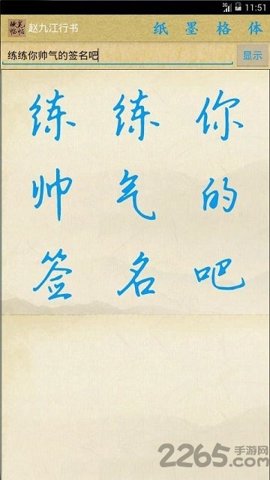 11:51
赵九江行书 纸 墨 格 体
练练你帅气的签名吧 显示
练 练 你
帅 气 的
签 名 吧
2265.com
手游网